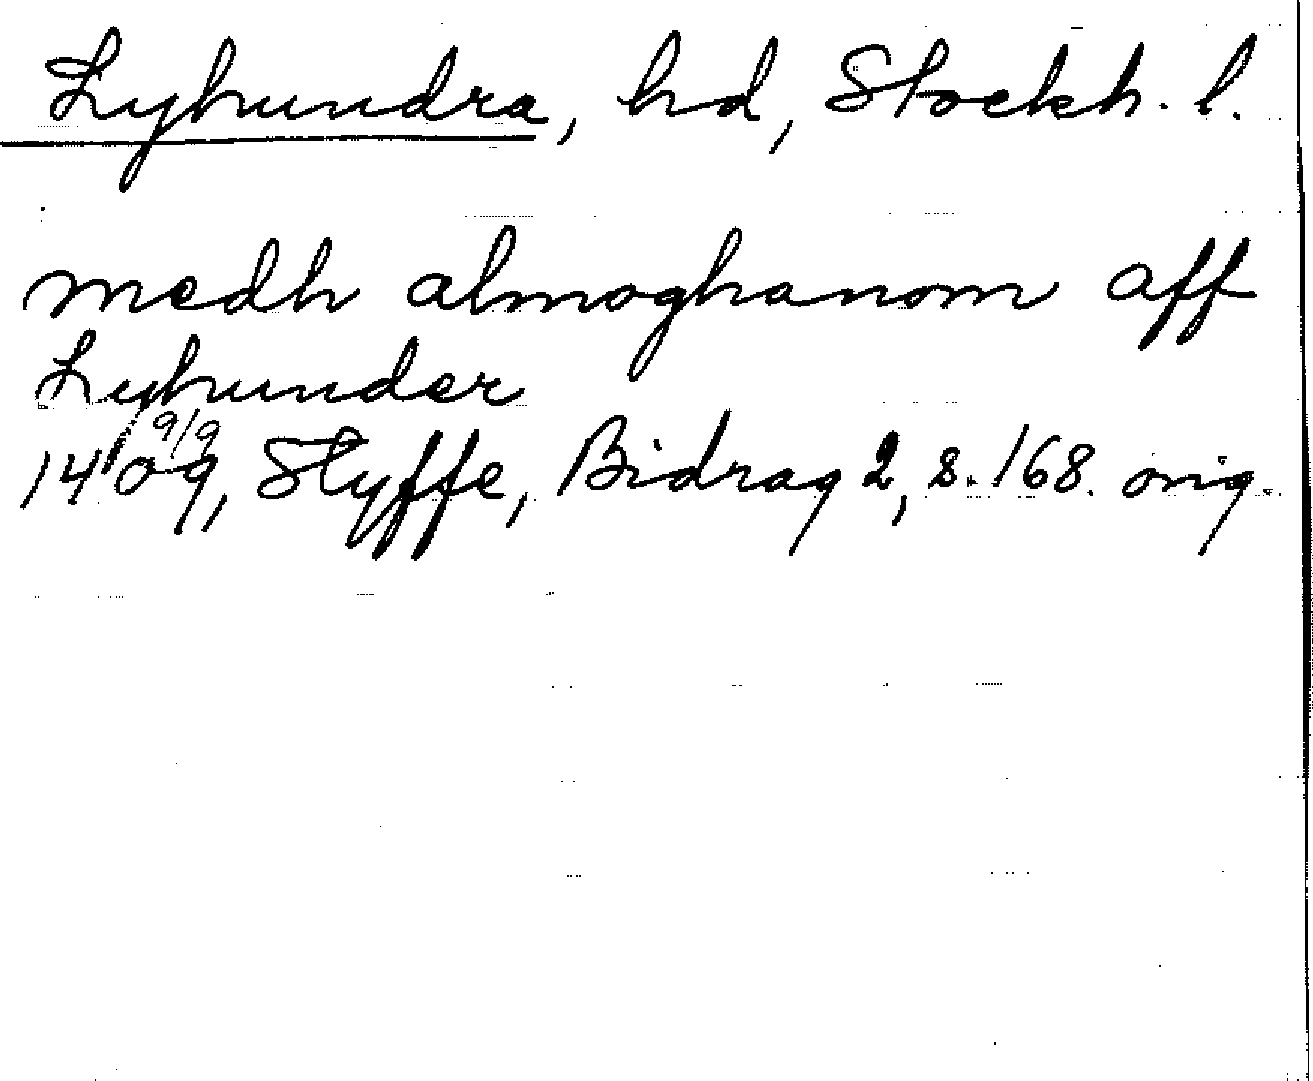 Lyhundra, hd, Stockh. l.
medh almoghanom aff
Lyhunder
1409 9/9, Styffe, Bidrag 2, s. 168. orig.